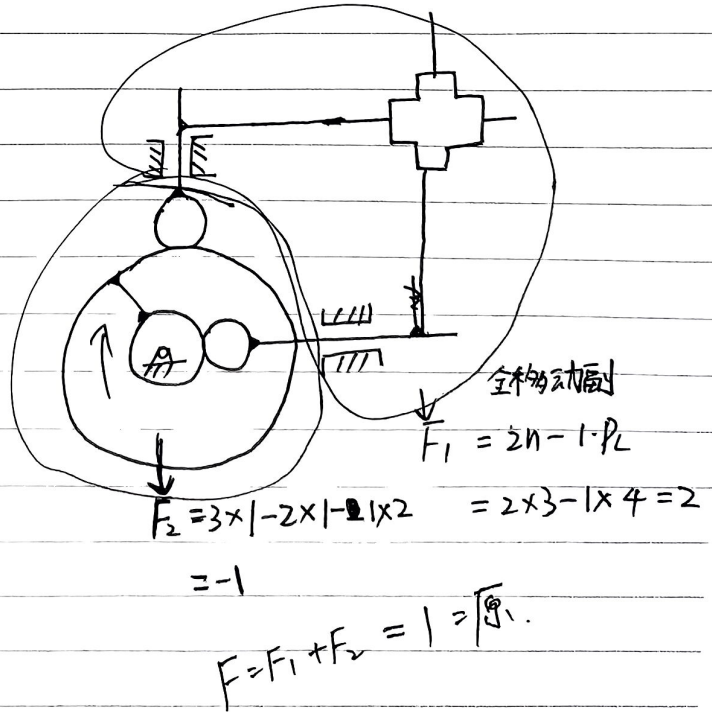 全移动副
F₁ = 2n - 1·P_L
= 2×3 - 1×4 = 2
F₂ = 3×1 - 2×1 - 1×2
= -1
F = F₁ + F₂ = 1 = 原.